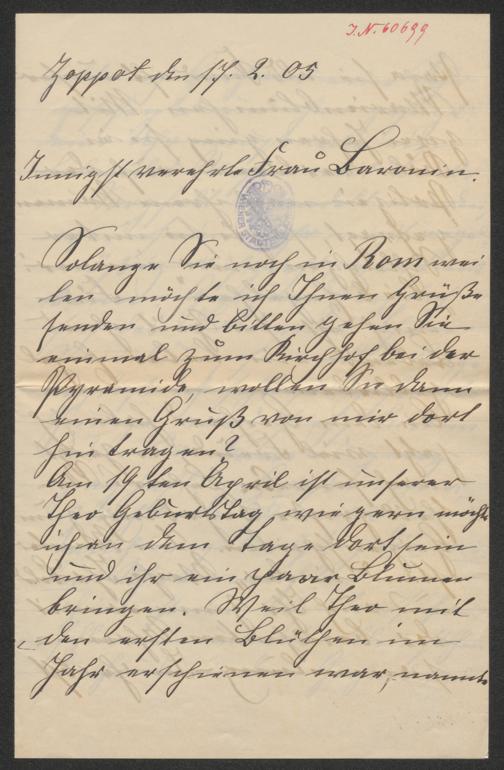 I.N. 60699
Zoppot den 17. 2. 05
Innigst verehrte Frau Baronin.
Solange Sie noch in Rom wei
len möchte ich Ihnen Grüße
senden und bitten gehen Sie
einmal zum Kirchhof bei der
Pyramide, wollen Sie dann
einen Gruß von mir dort
hintragen?
Am 19ten April ist unserer
Theo Geburtstag wie gern möchte
ich an dem Tage dort sein
und ihr ein paar Blumen
bringen. Weil Theo mit
den ersten Blüthen im
Jahr erschienen war, nannte